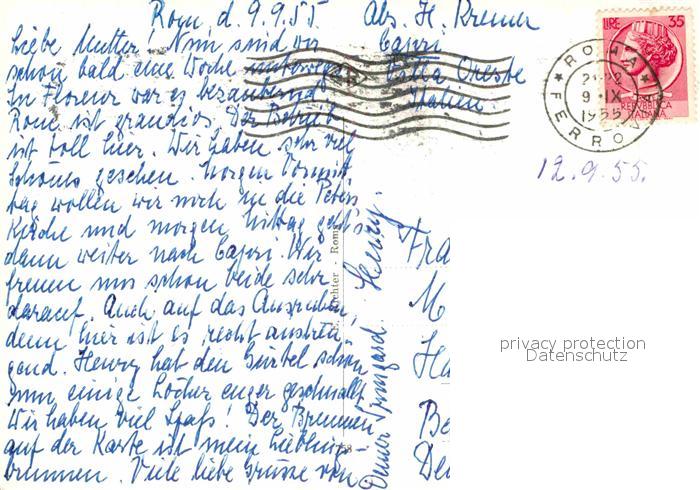 Rom, d. 9.9.55
Liebe Mutter! Nun sind wir
schon bald eine Woche unterwegs.
In Florenz war es bezaubernd,
Rom ist grandios. Der Betrieb
ist toll hier. Wir haben sehr viel
Schönes gesehen. Morgen Vormit-
tag wollen wir noch in die Peters
Kirche und morgen Mittag geht's
dann weiter nach Capri. Wir
freuen uns schon beide sehr
darauf. Auch auf das Ausruhen,
denn hier ist es recht anstren
gend. Henry hat den Gürtel schon
um einige Löcher enger geschnallt
Wir haben viel Spaß! Der Brunnen
auf der Karte ist mein Lieblings-
brunnen. Viele liebe Grüsse von
Deiner Irmgard. Henry.
Abs. H. Kremer
Capri
Villa Oreste
Italien.
LIRE 35
REPVBBLICA
ITALIANA
ROMA
FERROVIA
9 IX
1955
12.9.55.
Fra
M
Ha
Be
De
Rom
privacy protection
Datenschutz